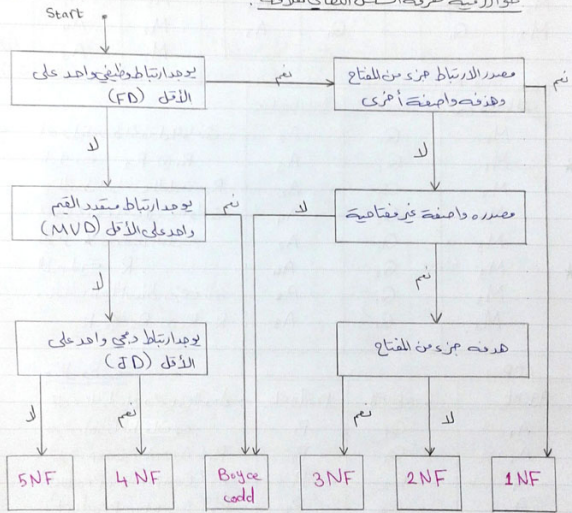 خوارزمية معرفة الشكل النظامي لعلاقة :
Start
يوجد ارتباط وظيفي واحد على
الأقل (FD)
نعم
مصدر الارتباط جزء من المفتاح
وهدفه واصفة أخرى
نعم
لا
لا
يوجد ارتباط متعدد القيم
واحد على الأقل (MVD)
نعم
لا
مصدره واصفة غير مفتاحية
لا
نعم
يوجد ارتباط دمجي واحد على
الأقل (JD)
هدفه جزء من المفتاح
لا
نعم
نعم
لا
5NF
4NF
Boyce
codd
3NF
2NF
1NF